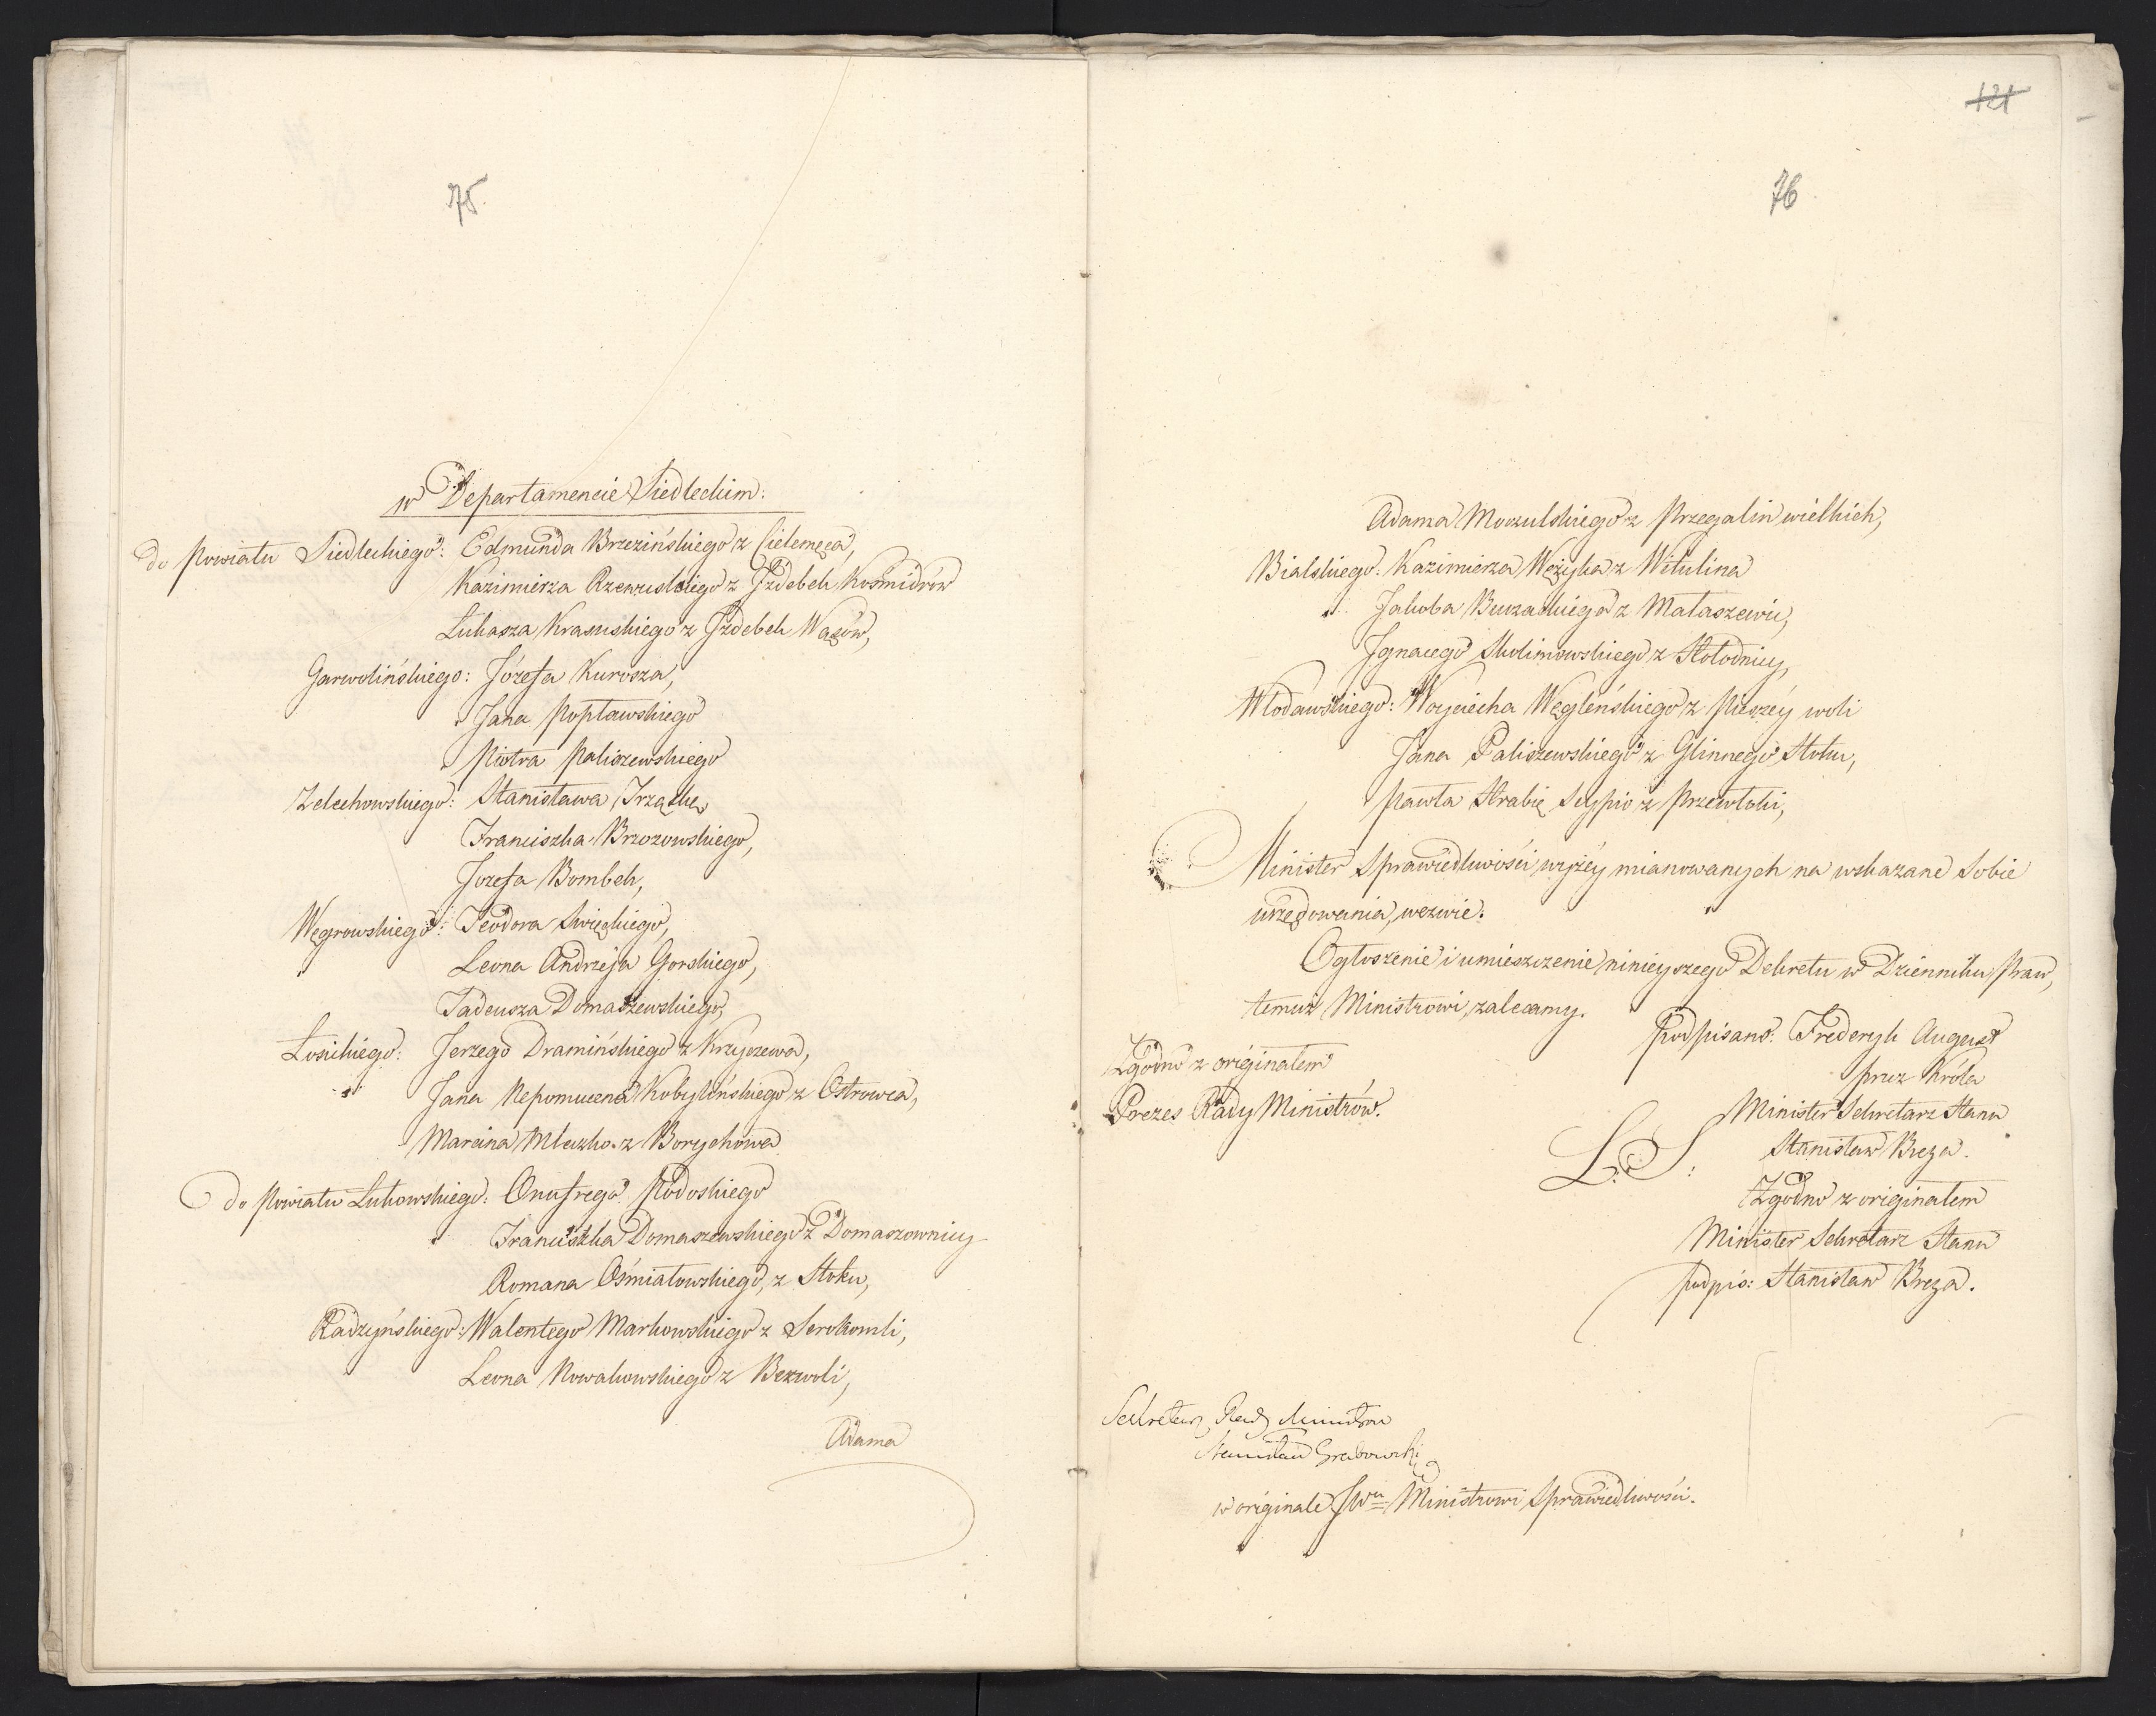 75.
w Departamencie Siedleckim:
do Powiatu Siedleckiego: Edmunda Brzezińskiego z Cielemęca,
Kazimierza Rzewuskiego z Jzdebek Kośmidrów
Łukasza Krasuskiego z Jzdebek Wązów,
Garwolińskiego: Józefa Kurosza,
Jana Popławskiego
Piotra Paliszewskiego
Zelechowskiego: Stanisława Trząskę
Franciszka Brzozowskiego,
Jozefa Bombek,
Węgrowskiego: Teodora Swięckiego,
Leona Andrzeja Gorskiego,
Tadeusza Domaszewskiego,
Łosickiego: Jerzego Dramińskiego z Krzyczewa,
Jana Nepomucena Kobylińskiego z Ostrowca,
Marcina Mleczko z Borychowa
do Powiatu Łukowskiego: Onufrego Rodoskiego
Franciszka Domaszewskiego z Domaszownicy
Romana Ośmiałowskiego, z Stoku,
Radzyńskiego: Walentego Markowskiego z Serokomli,
Leona Nowakowskiego z Bezwoli,
Adama
121
76
Adama Moczulskiego z Przegalin wielkich,
Bialskiego: Kazimierza Wężyka z Witulina
Jakoba Buczackiego z Małaszewic,
Jgnacego Skolimowskiego z Hołodnicy,
Włodawskiego: Woyciecha Węgleńskiego z Pieszéy woli
Jana Paliszewskiego z Glinnego Stoku,
Pawła Hrabię Scypio z Przewłoki,
Minister Sprawiedliwości wyżéy mianowanych na wskazane Sobie
urzędowania, wezwie.
Ogłoszenie i umieszczenie ninieyszego Dekretu w Dzienniku Praw,
temuż Ministrowi, zalecamy.
Podpisano: Frederyk August
przez Króla
Minister Sekretarz Stanu
Stanisław Breza.
L. S:
Zgodno z originałem
Minister Sekretarz Stanu
podpis: Stanisław Breza.
Zgodno z originałem
Prezes Rady Ministrów.
Sekretarz Rady Ministrów
Stanisław Grabowski
w originale JWu Ministrowi Sprawiedliwości.